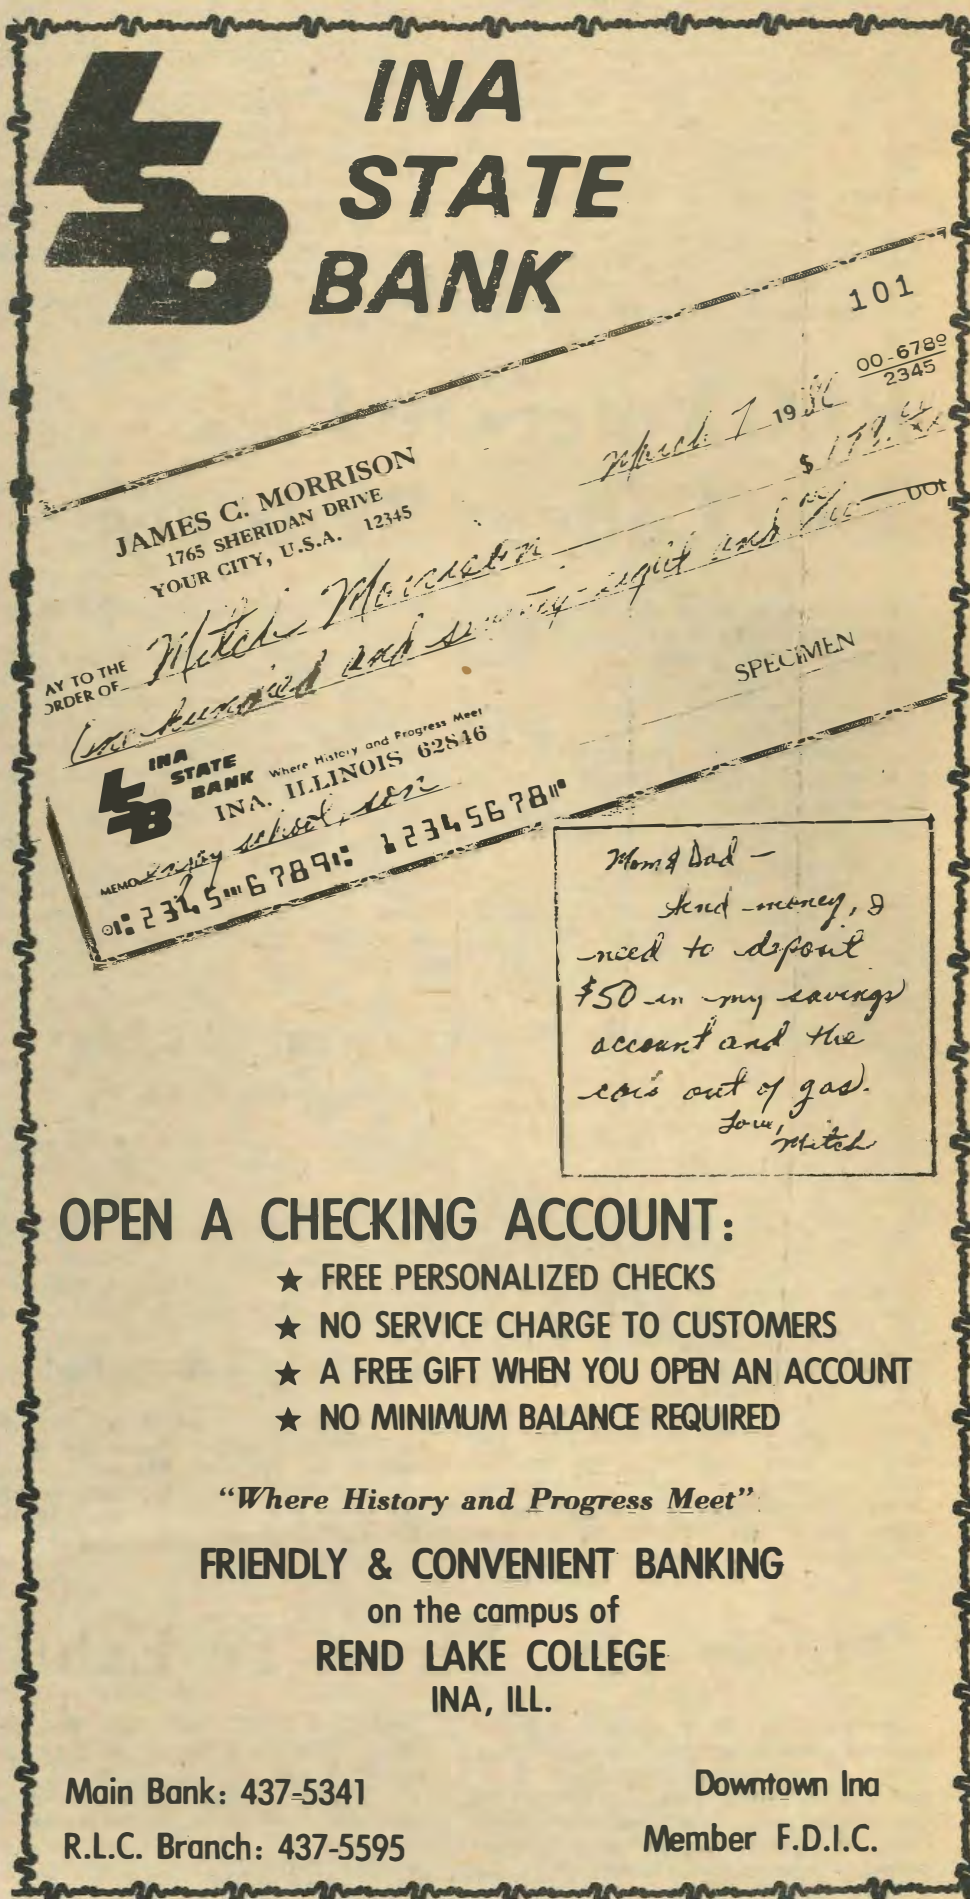 INA
STATE
BANK
101
00-6789
2345
March 7 19
$
JAMES C. MORRISON
1765 SHERIDAN DRIVE
YOUR CITY, U.S.A. 12345
AY TO THE
ORDER OF Mitch Morrison
One hundred and seventy-eight and no DOL
SPECIMEN
INA
STATE
BANK Where History and Progress Meet
INA, ILLINOIS 62846
MEMO enjoy school, son
⑆2345⑈6789⑆ 12345678⑈
Mom & Dad —
Send money, I
need to deposit
$50 in my savings
account and the
car's out of gas.
Love,
Mitch
OPEN A CHECKING ACCOUNT:
★ FREE PERSONALIZED CHECKS
★ NO SERVICE CHARGE TO CUSTOMERS
★ A FREE GIFT WHEN YOU OPEN AN ACCOUNT
★ NO MINIMUM BALANCE REQUIRED
"Where History and Progress Meet"
FRIENDLY & CONVENIENT BANKING
on the campus of
REND LAKE COLLEGE
INA, ILL.
Main Bank: 437-5341
R.L.C. Branch: 437-5595
Downtown Ina
Member F.D.I.C.